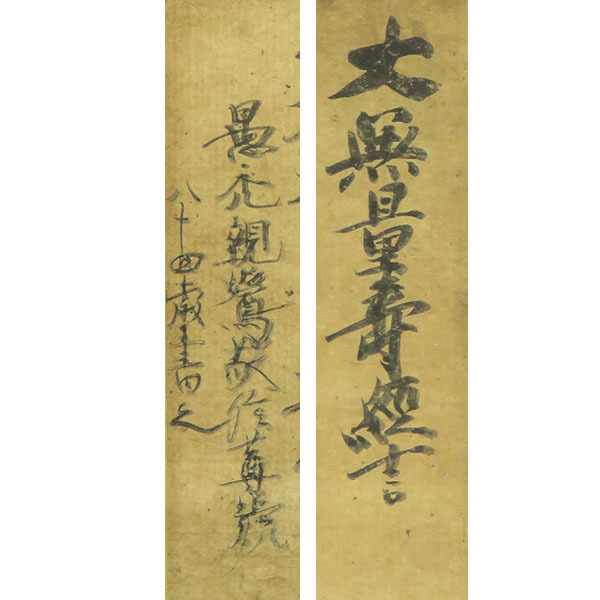 大無量壽經言
愚禿親鸞敬信尊號
八十四歳書之